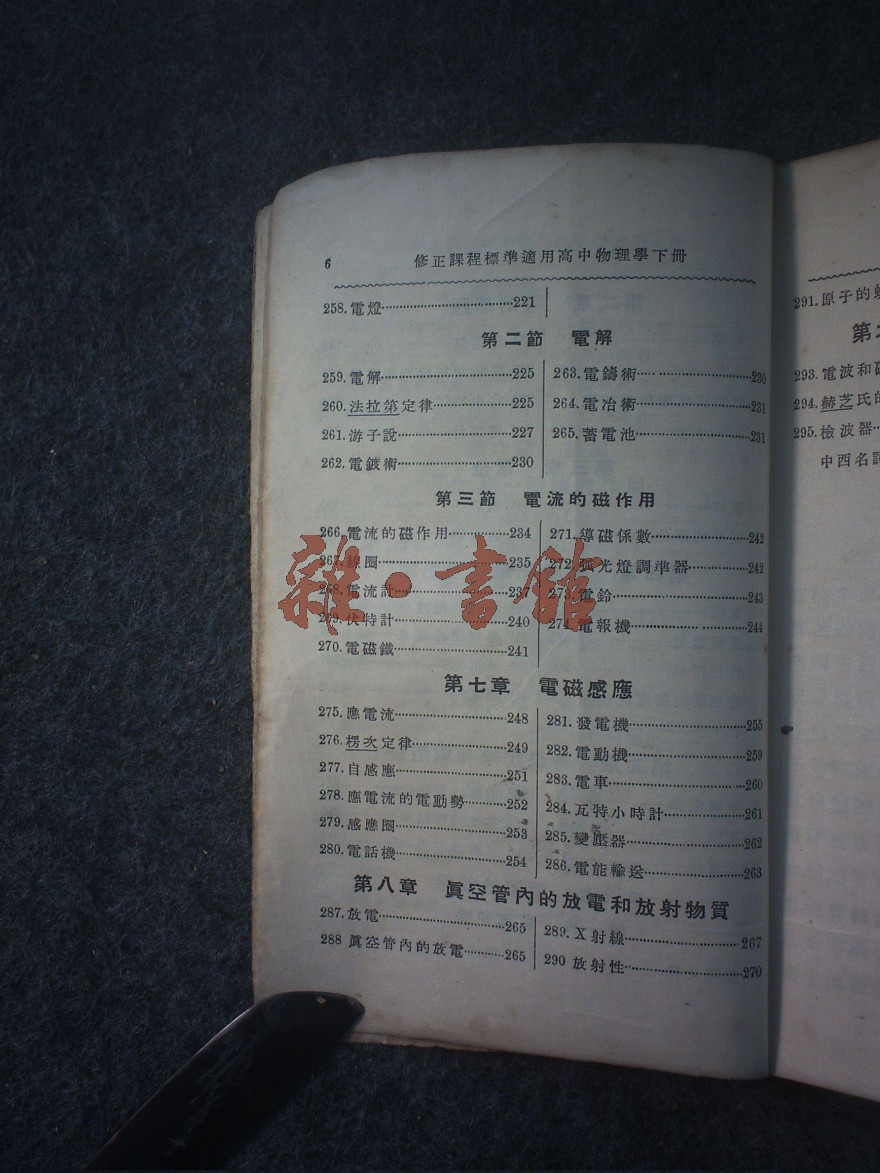 6 修正課程標準適用高中物理學下冊
258.電燈……221
第二節 電解
259.電解……225
260.法拉第定律……225
261.游子說……227
262.電鍍術……230
263.電鑄術……230
264.電冶術……231
265.蓄電池……231
第三節 電流的磁作用
266.電流的磁作用……234
267.線圈……235
268.電流計……237
269.伏特計……240
270.電磁鐵……241
271.導磁係數……242
272.弧光燈調準器……242
273.電鈴……243
274.電報機……244
第七章 電磁感應
275.應電流……248
276.楞次定律……249
277.自感應……251
278.應電流的電動勢……252
279.感應圈……253
280.電話機……254
281.發電機……255
282.電動機……259
283.電車……260
284.瓦特小時計……261
285.變壓器……262
286.電能輸送……263
第八章 眞空管內的放電和放射物質
287.放電……265
288 眞空管內的放電……265
289.X射線……267
290 放射性……270
雜·書館
291.原子的
第
293.電波和
294.赫芝氏的
295.檢波器
中西名